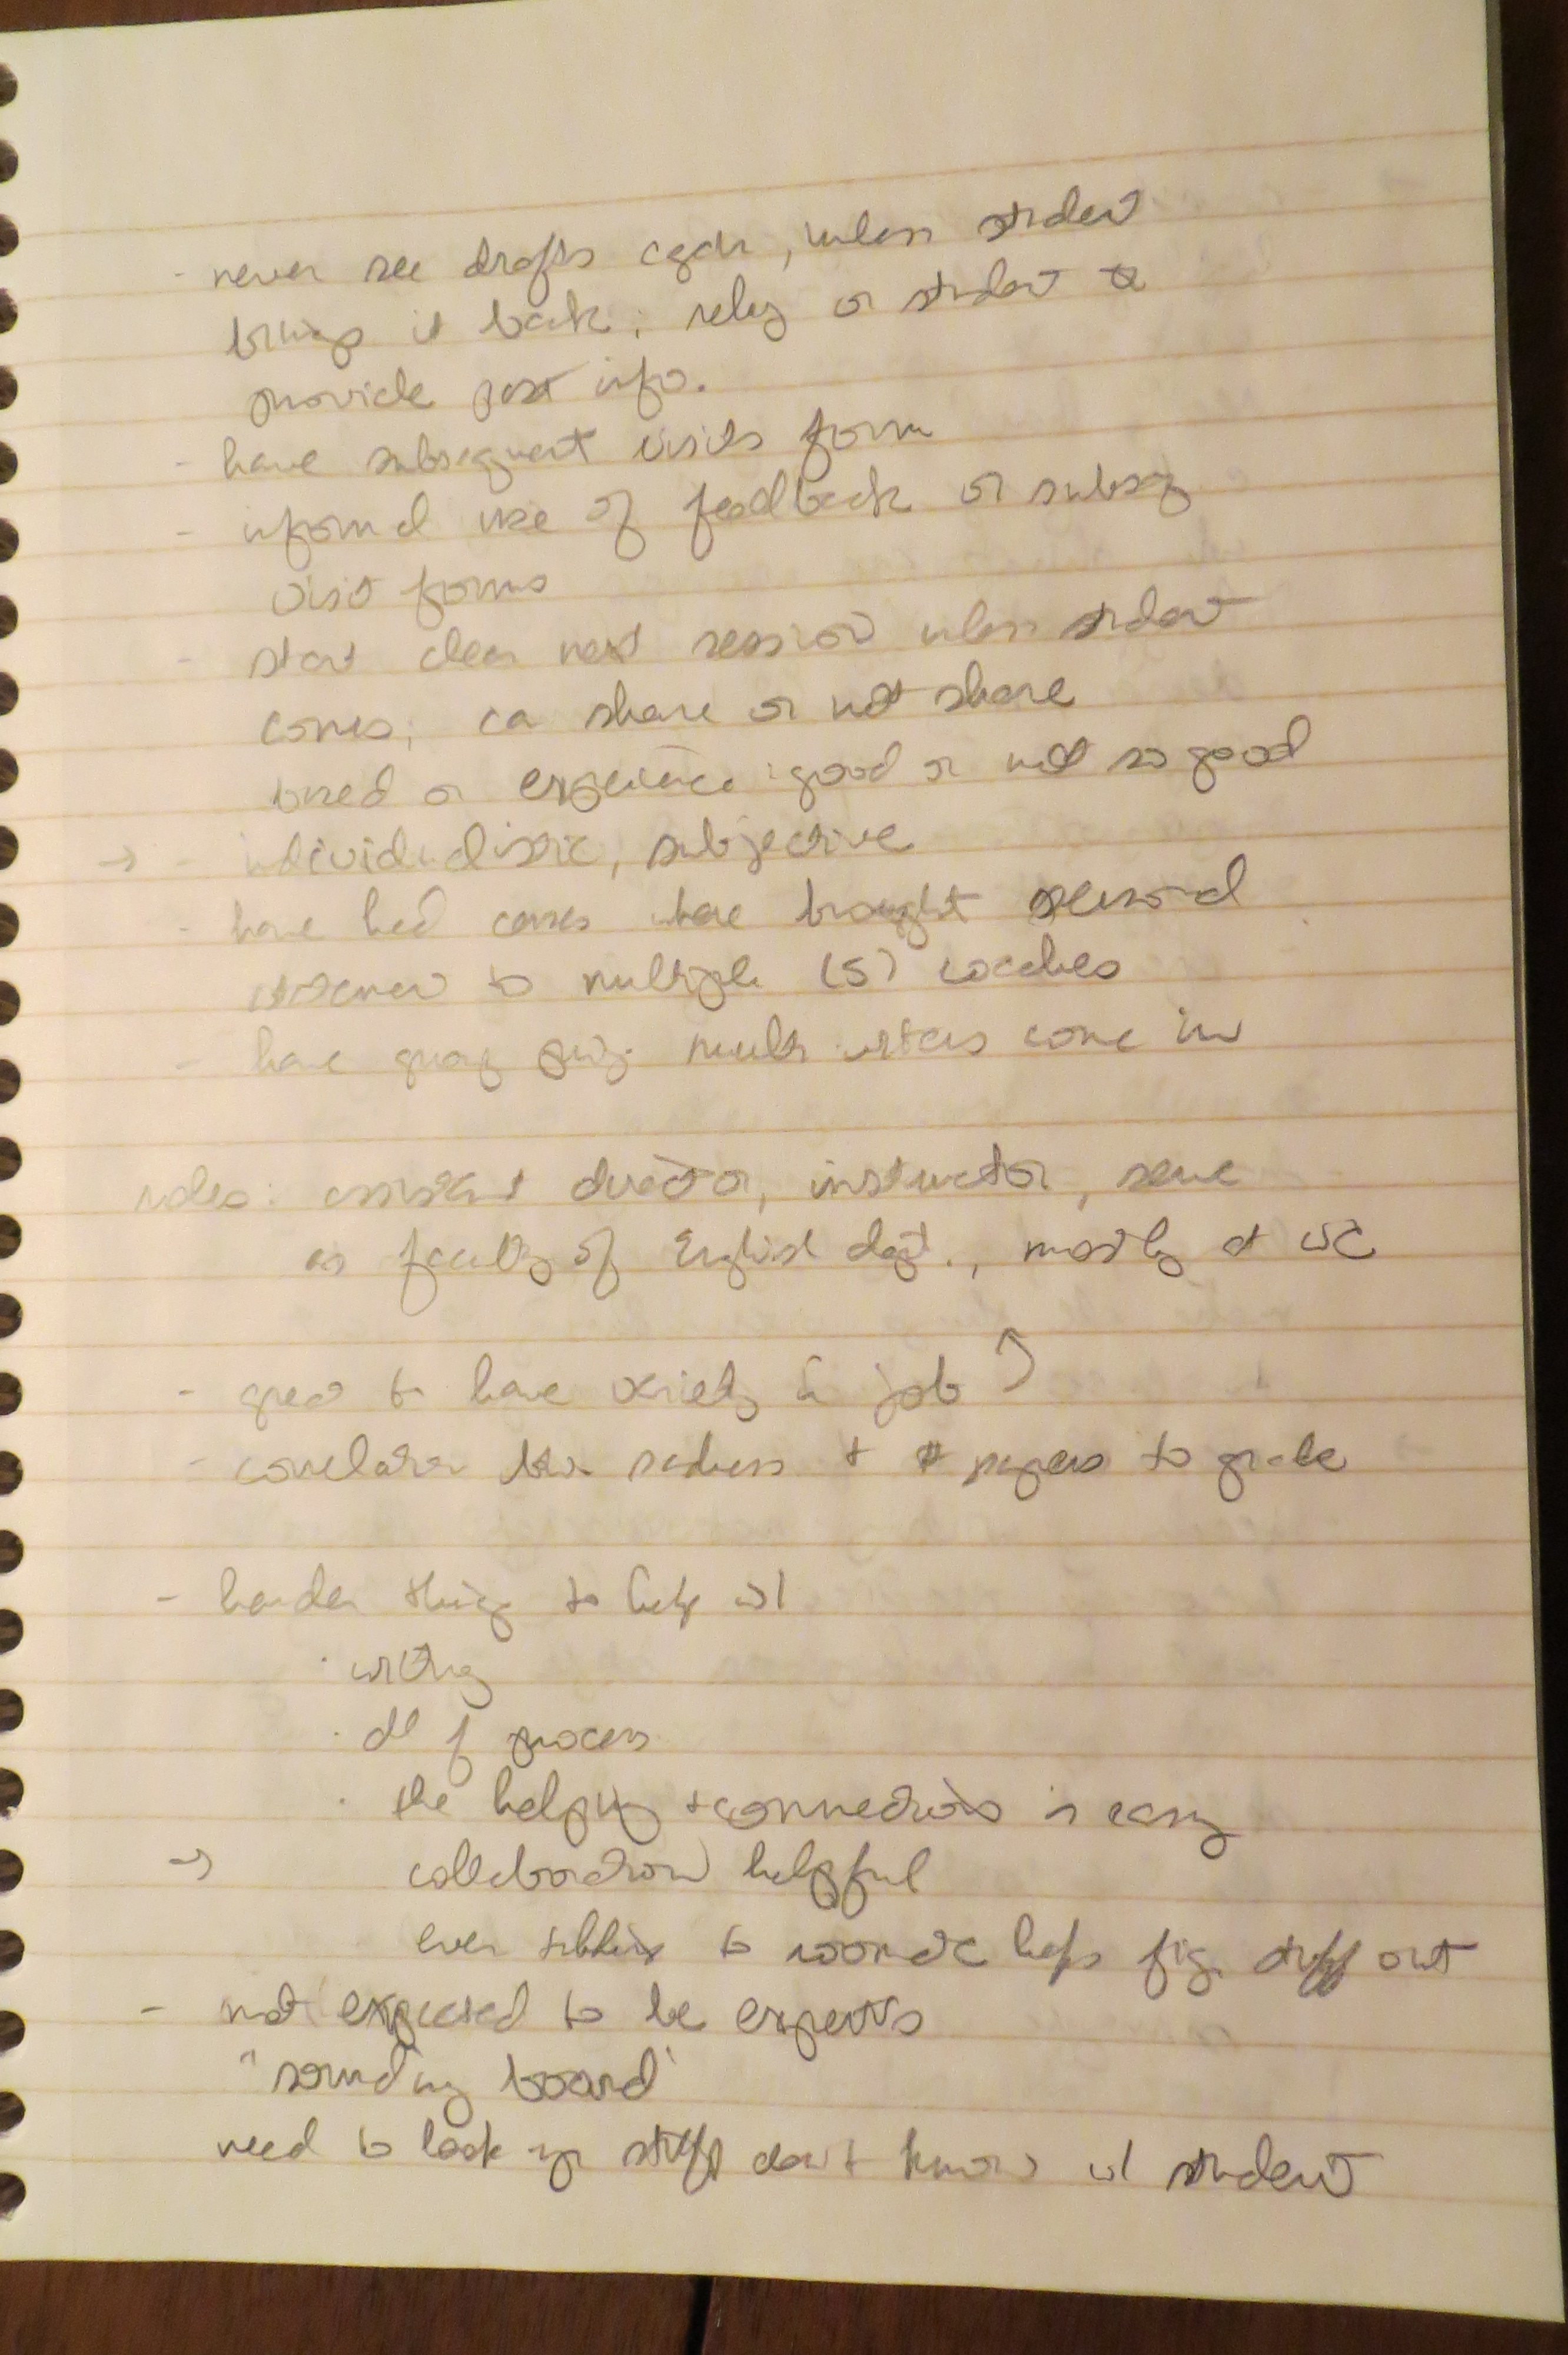 - never see drafts again, unless student
brings it back; rely on student to
provide past info.
- have subsequent visits form
- informal use of feedback or subseq
visit forms
- start clean next session when student
comes; can share or not share
based on experience: good or not so good
→ - individualistic, subjective
- have had cases where brought personal
statement to multiple (5) coaches
- have group proj. mult. writers come in
roles: assistant director, instructor, serve
as faculty of English dept., mostly at WC
- great to have variety in job ⤴
- correlation btw. sadness + # papers to grade
- harder things to help w/
· writing
· all of process
· the helping + connections is easy
→ collaboration helpful
even talking to someone helps fig. stuff out
- not expected to be experts
"sounding board"
need to look up stuff don't know w/ student